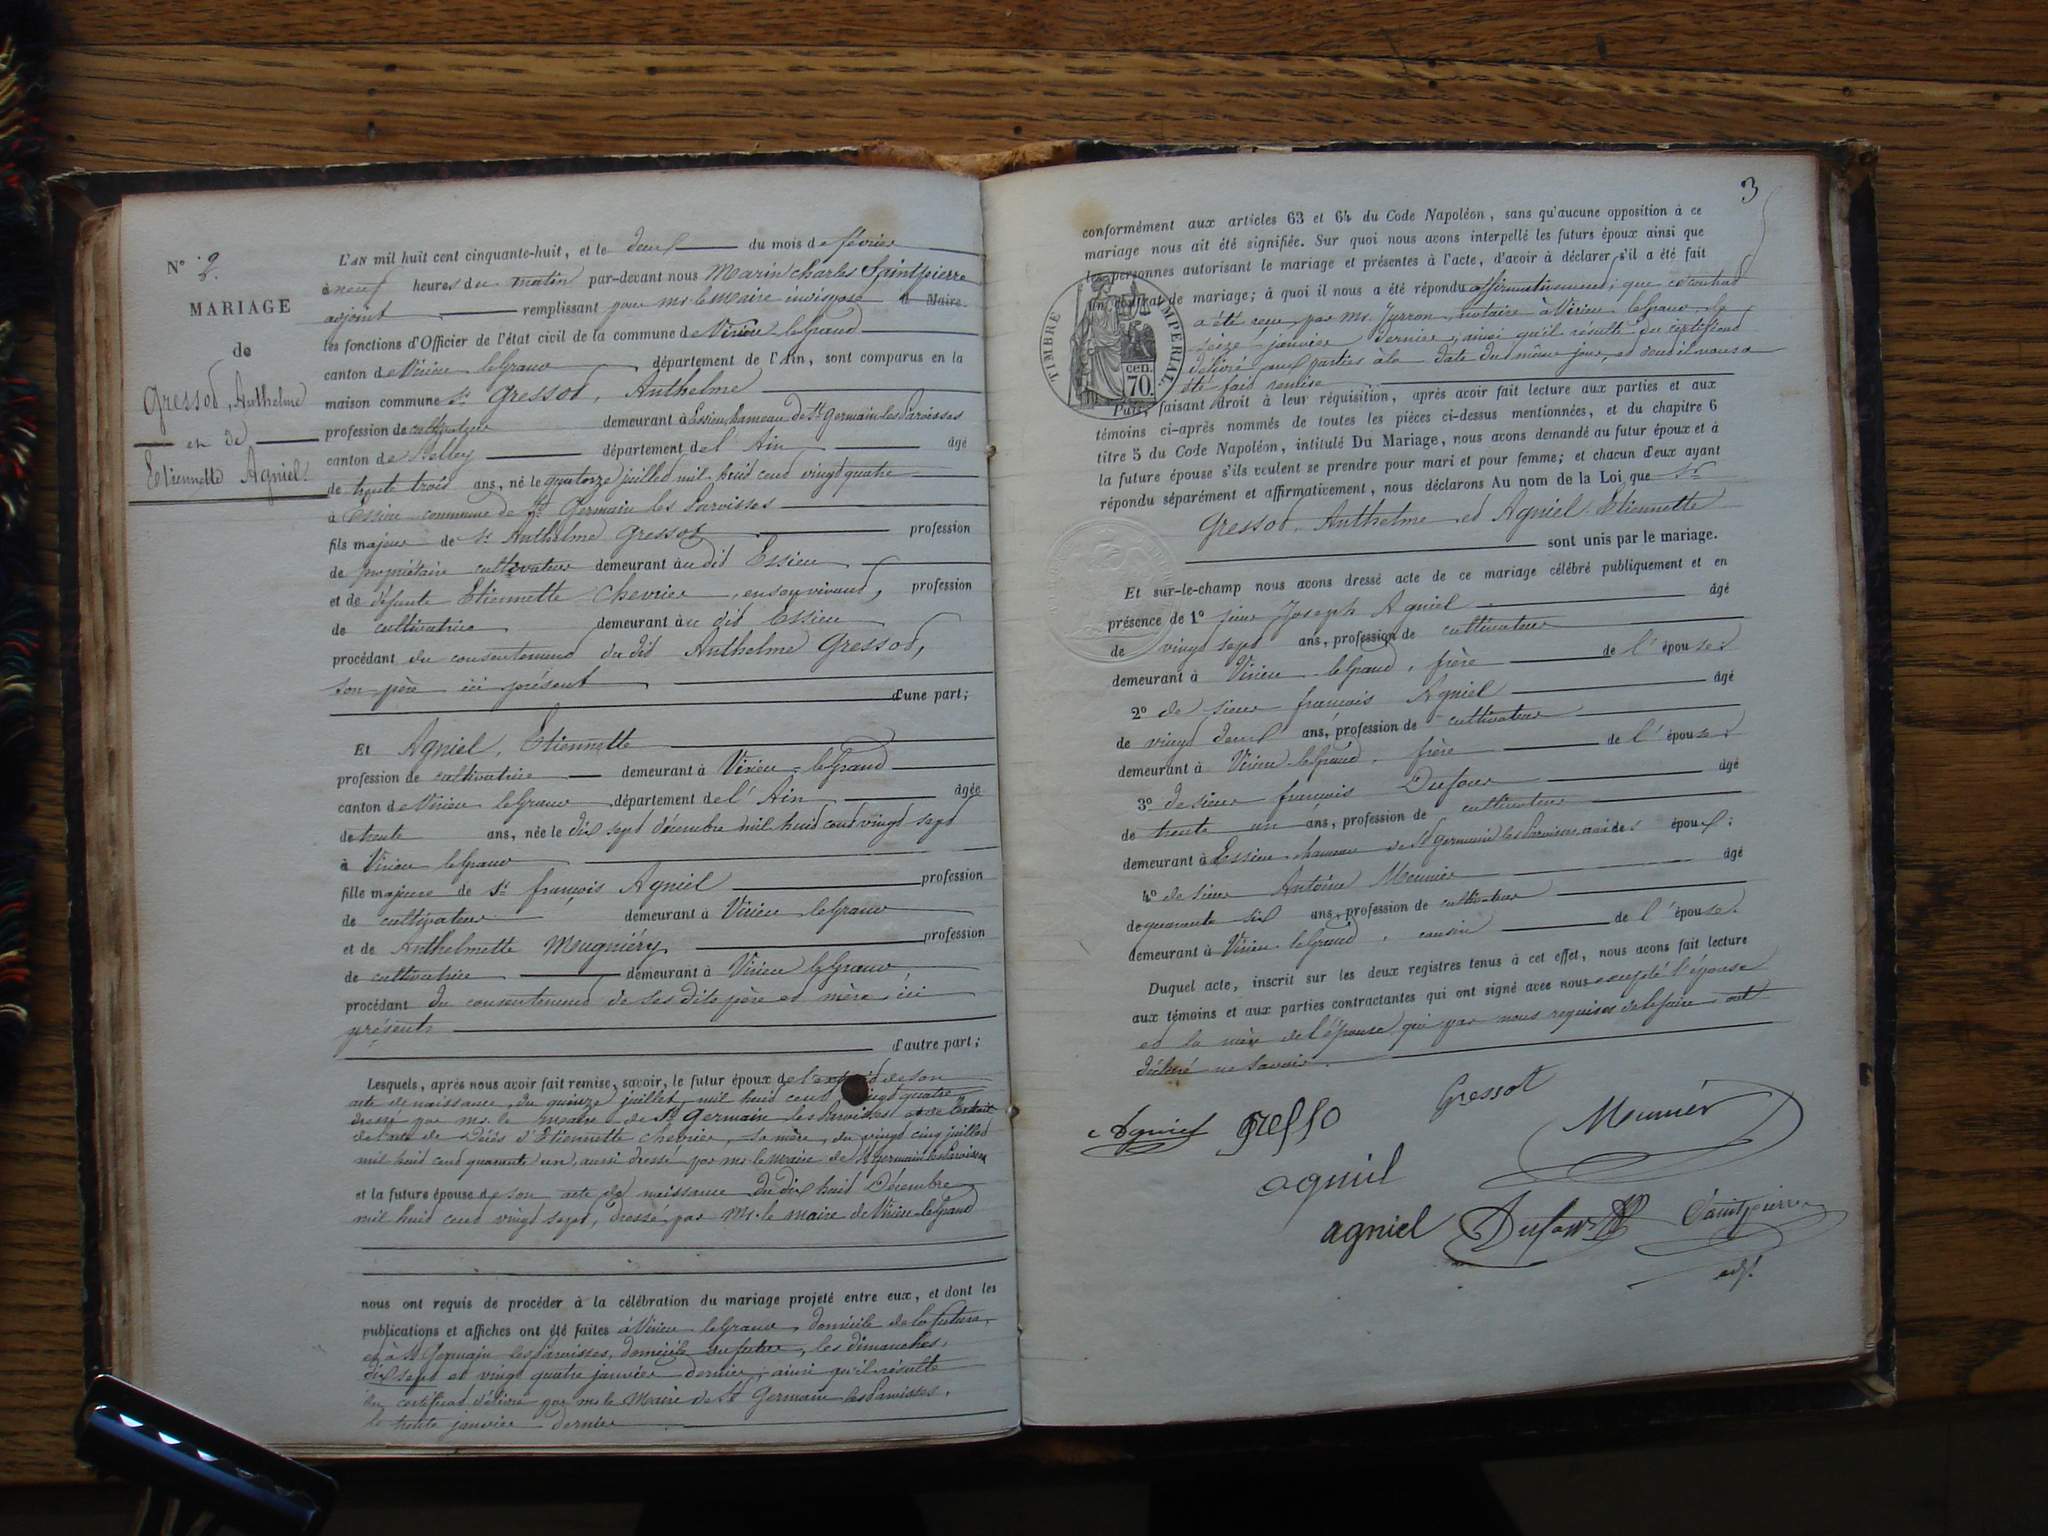 N° 2.
MARIAGE
de
Gressot, Anthelme
et de
Etiennette Agniel.
L'AN mil huit cent cinquante-huit, et le deux du mois de février
à neuf heures du matin par-devant nous Marin Charles Saintpierre
adjoint remplissant pour mr le maire indisposé Maire
les fonctions d'Officier de l'état civil de la commune de Virieu leGrand
canton de Virieu leGrand département de l'Ain, sont comparus en la
maison commune Sr Gressot, Anthelme
profession de cultivateur demeurant à Essieu, hameau de St Germain les Paroisses
canton de Belley département de l'Ain âgé
de trente trois ans, né le quatorze juillet mil huit cent vingt quatre
à Essieu commune de St Germain les Paroisses
fils majeur de Sr Anthelme Gressot profession
de propriétaire cultivateur demeurant au dit Essieu
et de défunte Etiennette Chevrier, en son vivant, profession
de cultivatrice demeurant au dit Essieu
procédant du consentement du dit Anthelme Gressot,
son père ici présent
d'une part;
Et Agniel, Etiennette
profession de cultivatrice demeurant à Virieu-leGrand
canton de Virieu leGrand département de l'Ain âgée
de trente ans, née le dix sept décembre mil huit cent vingt sept
à Virieu leGrand
fille majeure de Sr françois Agniel profession
de cultivateur demeurant à Virieu leGrand
et de Anthelmette Mugniéry profession
de cultivatrice demeurant à Virieu leGrand
procédant du consentement de ses dits père et mère ici
présents
d'autre part;
Lesquels, après nous avoir fait remise, savoir, le futur époux de l'extrait de son
acte de naissance, du quinze juillet mil huit cent vingt quatre
dressé par mr le maire de St Germain les Paroisses et de l'extrait
de l'acte de décès d'Etiennette Chevrier, sa mère, du vingt cinq juillet
mil huit cent quarante un, aussi dressé par mr le maire de St germain les Paroisses
et la future épouse de son acte de naissance du dix huit Décembre
mil huit cent vingt sept, dressé par Mr le maire de Virieu-leGrand
nous ont requis de procéder à la célébration du mariage projeté entre eux, et dont les
publications et affiches ont été faites à Virieu leGrand, domicile de la future,
et à St Germain les Paroisses, domicile du futur, les dimanches,
dix sept et vingt quatre janvier dernier, ainsi qu'il résulte
du certificat délivré par mr le Maire de St Germain les Paroisses,
le trente janvier dernier
3
conformément aux articles 63 et 64 du Code Napoléon, sans qu'aucune opposition à ce
mariage nous ait été signifiée. Sur quoi nous avons interpellé les futurs époux ainsi que
les personnes autorisant le mariage et présentes à l'acte, d'avoir à déclarer s'il a été fait
un contrat de mariage; à quoi il nous a été répondu affirmativement; que ce contrat
a été reçu par Mr notaire à Virieu leGrand, le
seize janvier dernier, ainsi qu'il résulte du certificat
délivré aux parties à la date du même jour, et dont il nous a
été fait remise
TIMBRE IMPERIAL
cen. 70.
Puis, faisant droit à leur réquisition, après avoir fait lecture aux parties et aux
témoins ci-après nommés de toutes les pièces ci-dessus mentionnées, et du chapitre 6
titre 5 du Code Napoléon, intitulé Du Mariage, nous avons demandé au futur époux et à
la future épouse s'ils veulent se prendre pour mari et pour femme; et chacun d'eux ayant
répondu séparément et affirmativement, nous déclarons Au nom de la Loi que Sr
Gressot, Anthelme et Agniel Etiennette
sont unis par le mariage.
Et sur-le-champ nous avons dressé acte de ce mariage célébré publiquement et en
présence de 1° sieur Joseph Agniel âgé
de vingt sept ans, profession de cultivateur
demeurant à Virieu leGrand, frère de l'épouse;
2° de sieur françois Agniel âgé
de vingt deux ans, profession de cultivateur
demeurant à Virieu leGrand, frère de l'épouse;
3° de sieur françois Dufour âgé
de trente un ans, profession de cultivateur
demeurant à Essieu hameau de St germain les Paroisses ami des époux;
4° de sieur Antoine Meunier âgé
de quarante six ans, profession de cultivateur
demeurant à Virieu-leGrand, cousin de l'épouse.
Duquel acte, inscrit sur les deux registres tenus à cet effet, nous avons fait lecture
aux témoins et aux parties contractantes qui ont signé avec nous excepté l'épouse
et la mère de l'épouse qui par nous requises de le faire ont
déclaré ne savoir.
Agniel gresso Gressot Meunier
agniel
agniel Dufour Saintpierre
adj.